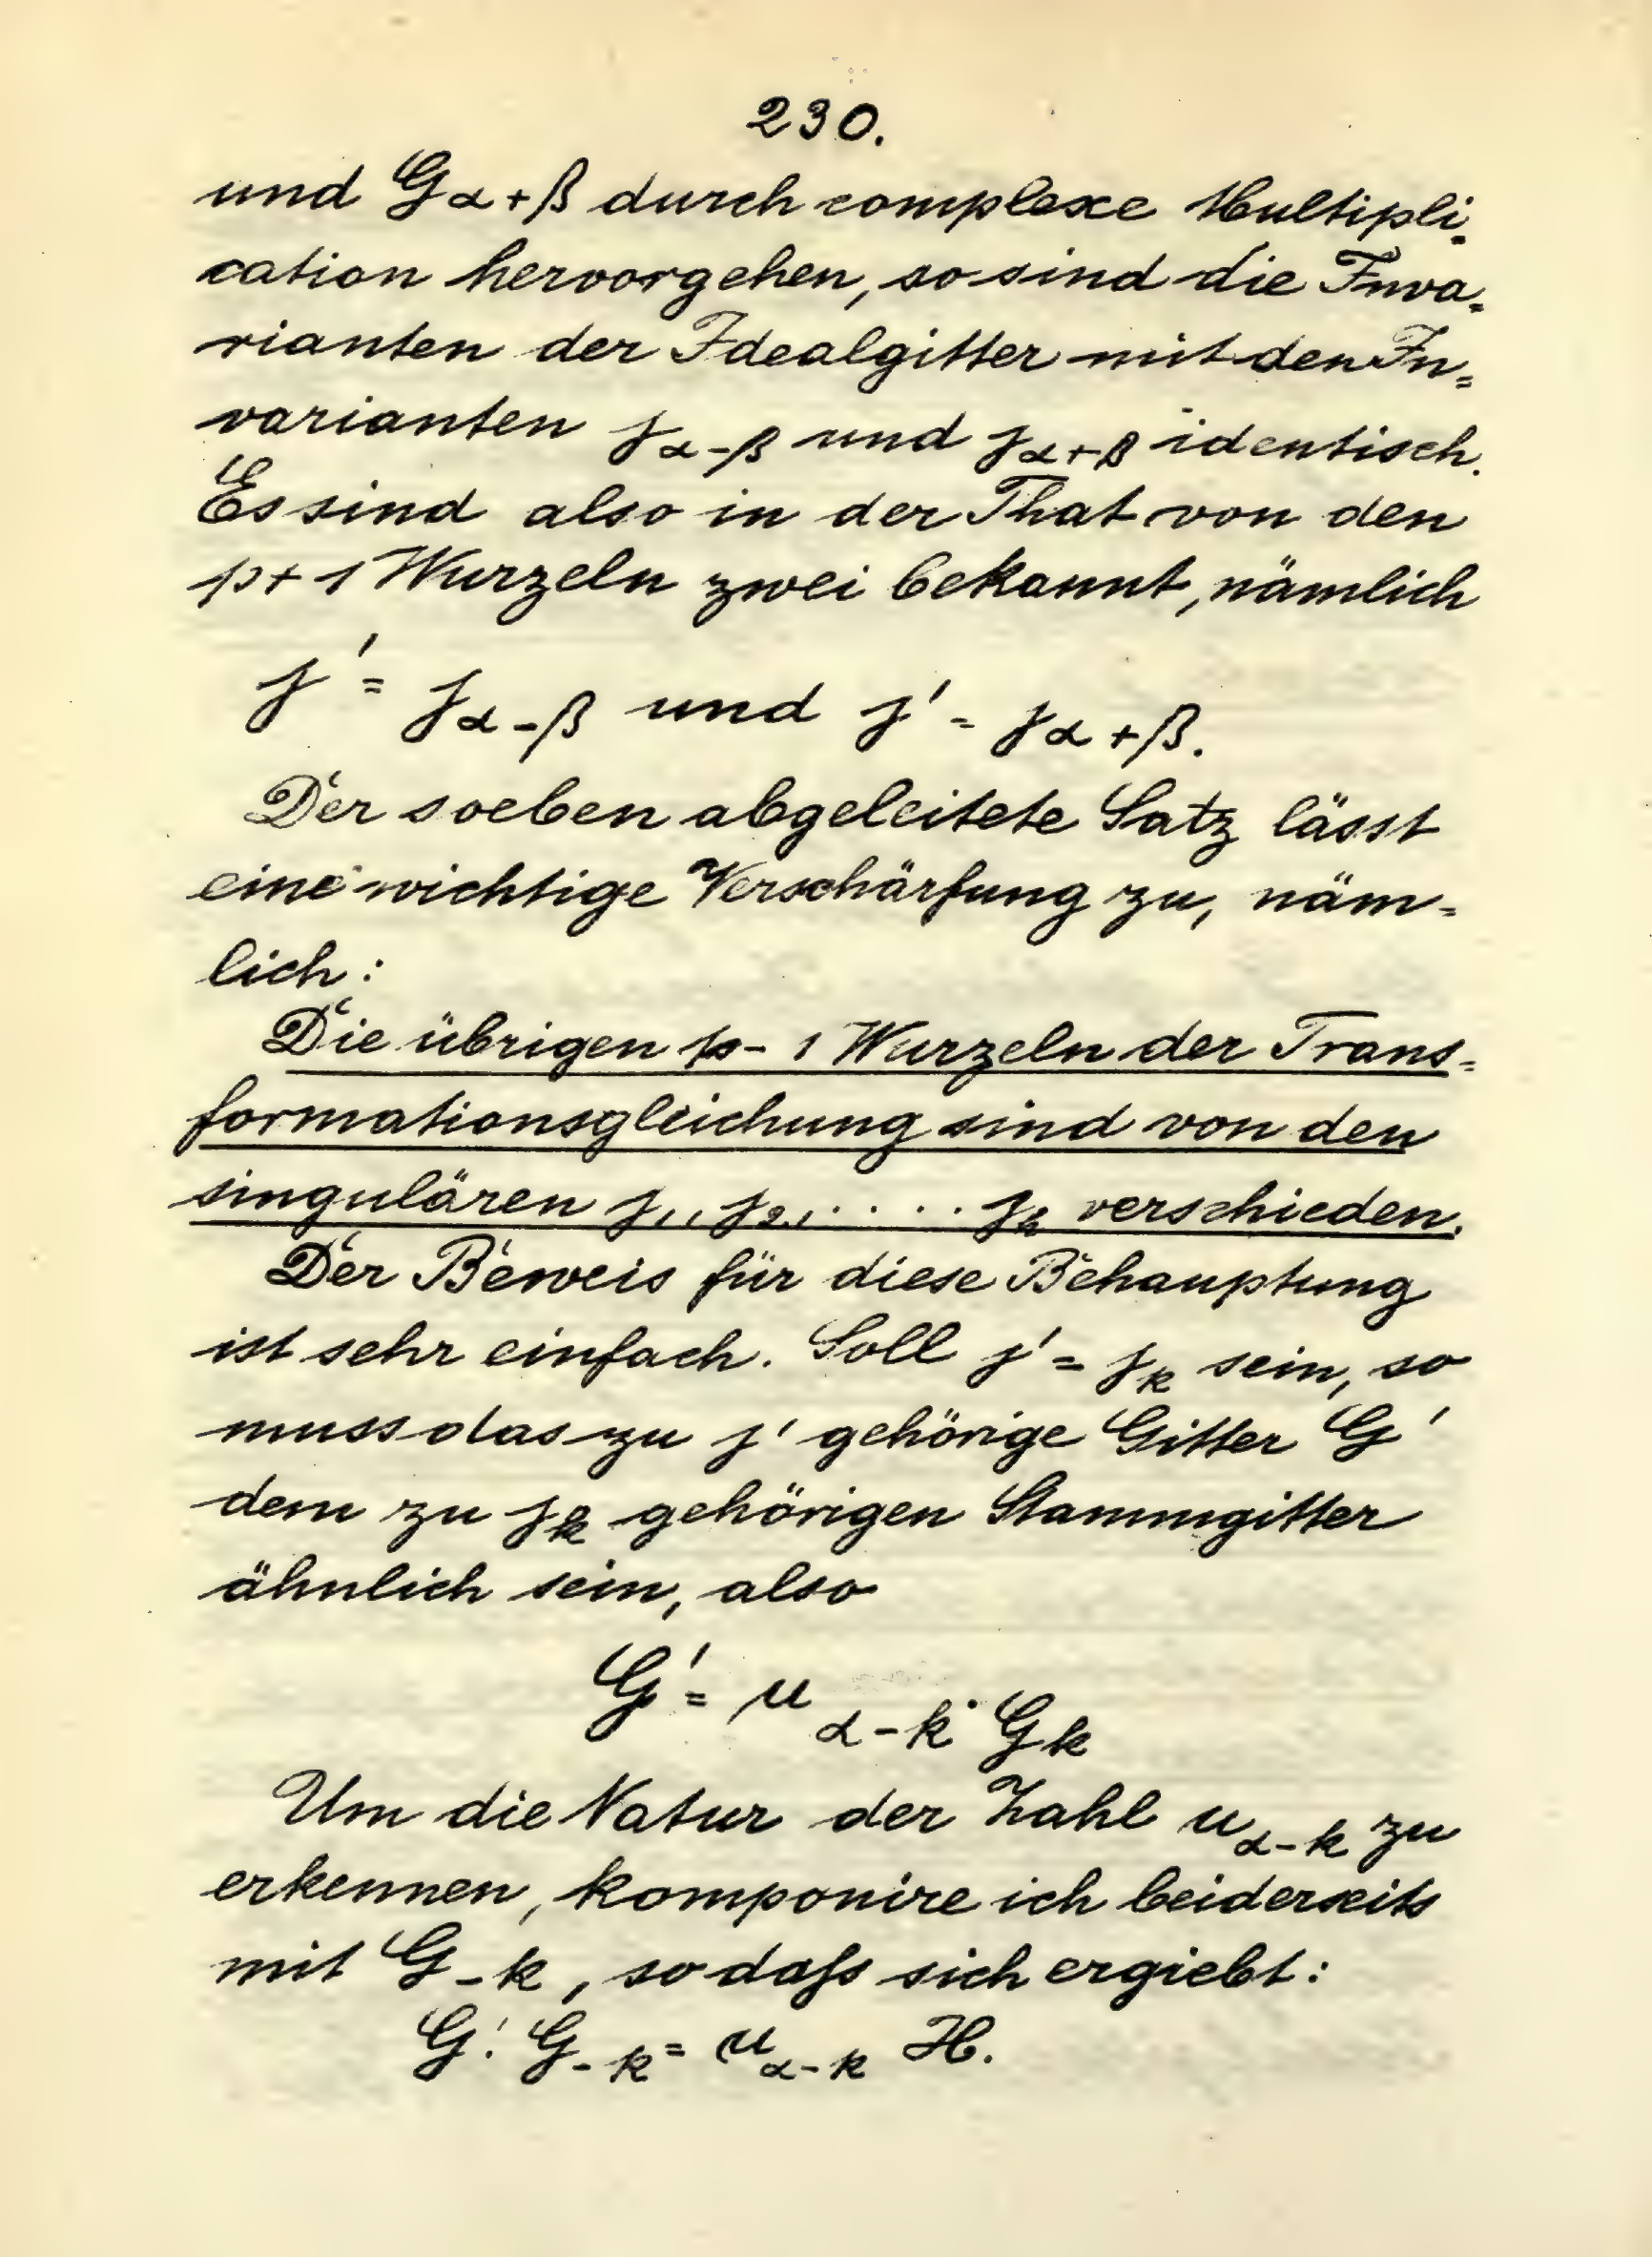 230.
und G α+β durch complexe Multipli-
cation hervorgehen, so sind die Inva-
rianten der Idealgitter mit den In-
varianten j α-β und j α+β identisch.
Es sind also in der That von den
p+1 Wurzeln zwei bekannt, nämlich
j' = j α-β und j' = j α+β.
Der soeben abgeleitete Satz lässt
eine wichtige Verschärfung zu, näm-
lich:
Die übrigen p-1 Wurzeln der Trans-
formationsgleichung sind von den
singulären j1, j2, ..... jh verschieden.
Der Beweis für diese Behauptung
ist sehr einfach. Soll j' = jk sein, so
muss das zu j' gehörige Gitter G'
dem zu jk gehörigen Stammgitter
ähnlich sein, also
G' = μ α-k · G k
Um die Natur der Zahl μ α-k zu
erkennen, komponire ich beiderseits
mit G -k, so daſs sich ergiebt:
G'. G -k = μ α-k H.